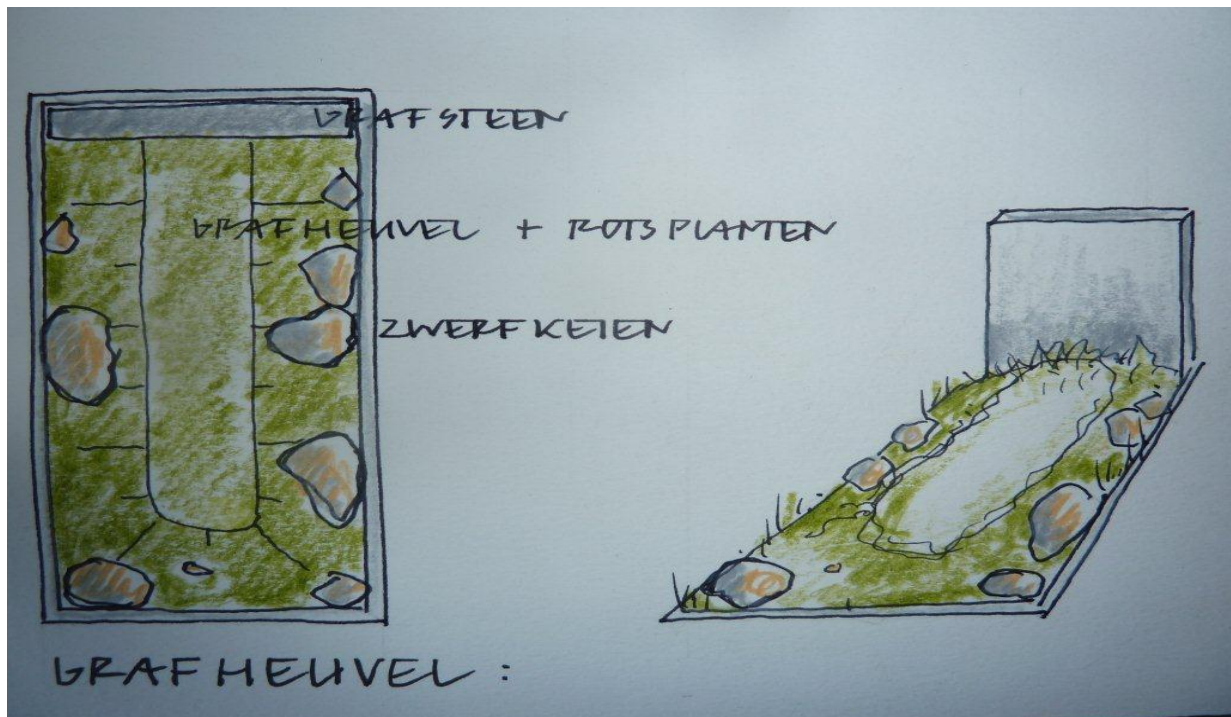 GRAFSTEEN
GRAFHEUVEL + ROTSPLANTEN
ZWERFKEIEN
GRAFHEUVEL :